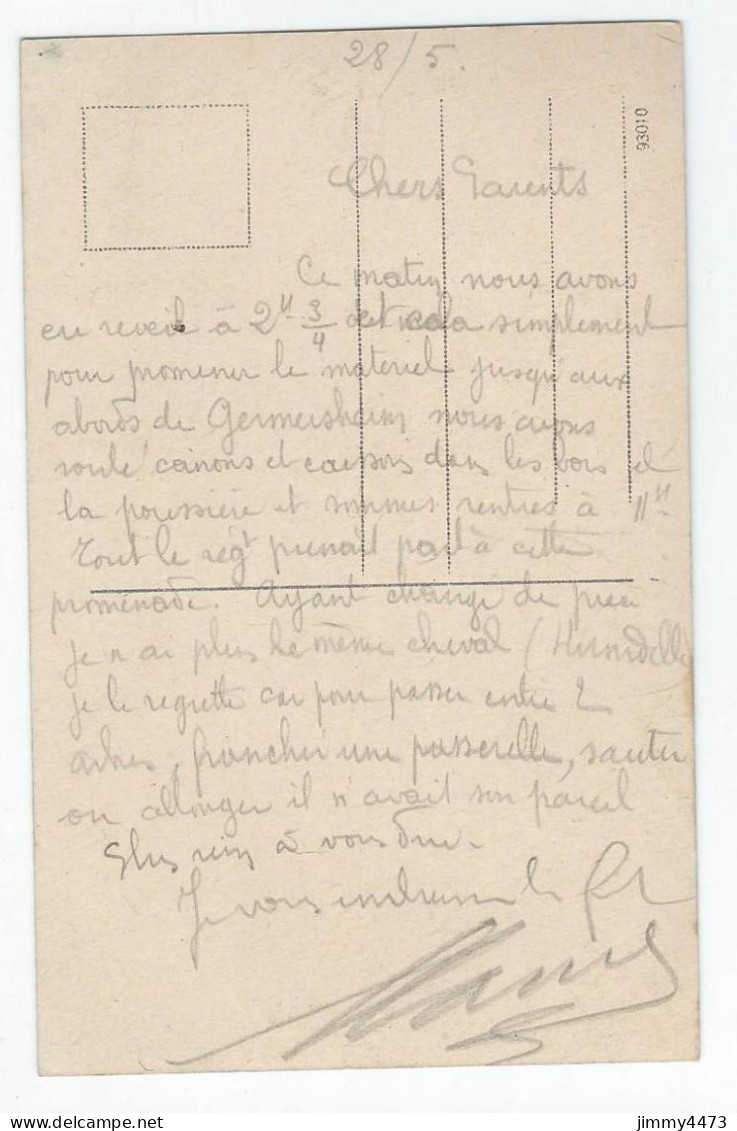 28/5.
93010
Chers Parents
Ce matin nous avons
eu reveil à 2H 3/4 et cela simplement
pour promener le materiel jusqu'aux
abords de Germersheim nous avons
roulé canons et caissons dans les bois et
la poussière et sommes rentrés à 11H
Tout le régt prenait part à cette
promenade. Ayant changé de pièce
je n'ai plus le même cheval (Hirondelle)
je le regrette car pour passer entre 2
arbres, franchir une passerelle, sauter
ou allonger il n'avait son pareil
Plus rien à vous dire.
Je vous embrasse
jimmy4473